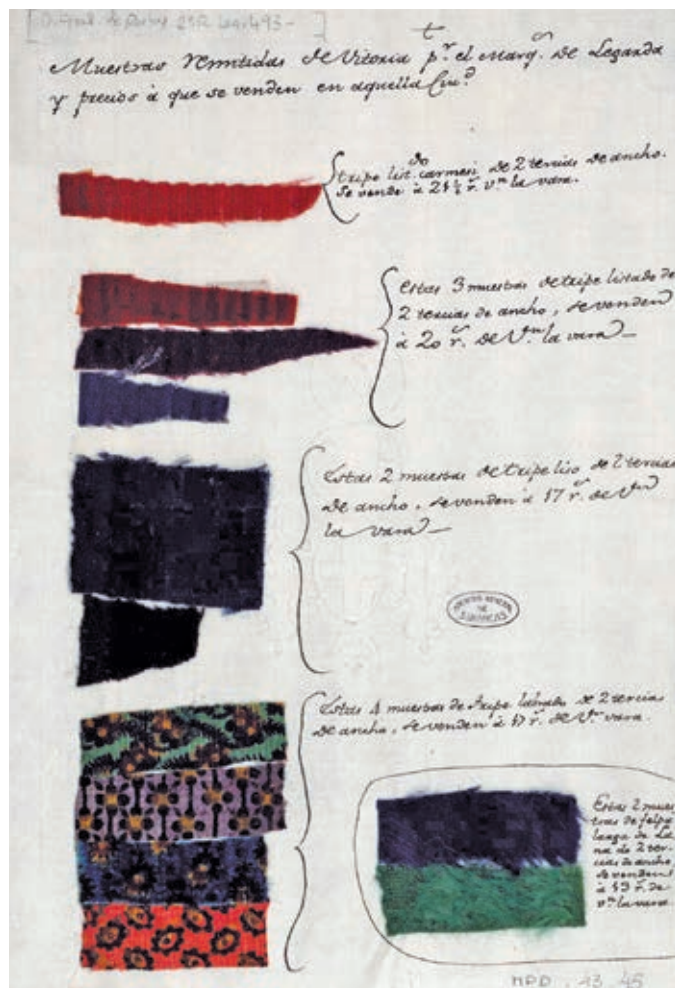 Gral. de
Muestras remitidas de Vitoria pr. el Marqs. de Legarda
y precios à que se venden en aquella Ciud.
tripe listdo carmesi de 2 tercias de ancho.
Se vende à 21½ rs. vn la vara.
Estas 3 muestras de tripe listado de
2 tercias de ancho, se venden
à 20 rs. de Vn. la vara
Estas 2 muestras de tripe liso de 2 tercias
de ancho, se venden à 17 rs. de Vn
la vara
ARCHIVO GENERAL
DE
SIMANCAS
Estas 4 muestras de tripe labrado de 2 tercias
de ancho, se venden à 17 rs. de Vn vara.
Estas 2 mues
tras de felpa
larga de La
na de 2 ter-
cias de ancho,
se venden
à 19 rs. de
Vn la vara.
MPD. 43, 45